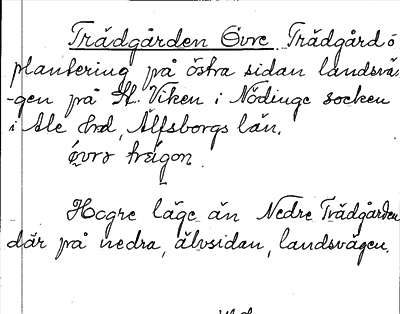 Trädgården Övre Trädgård o
plantering på östra sidan landsvä-
-gen på St. Viken i Nödinge socken
i Ale hd, Älfsborgs län.
Högre läge än Nedre Trädgården
där på nedra, älvsidan, landsvägen.